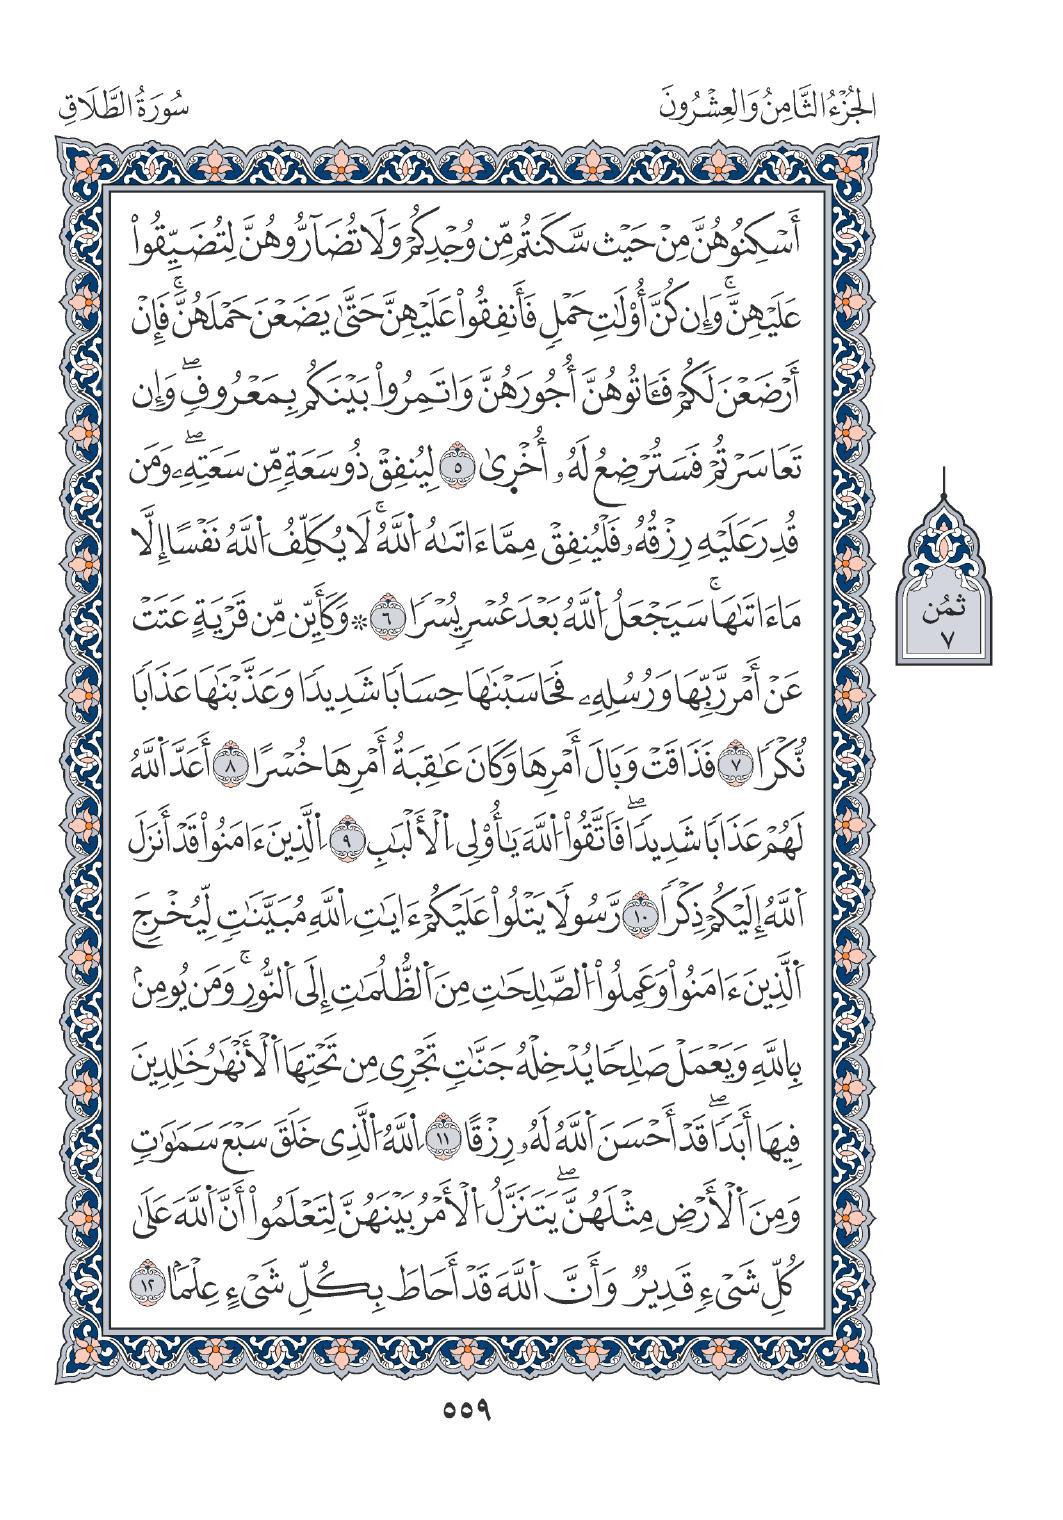 الجُزْءُ الثَّامِنُ وَالعِشْرُونَ
سُورَةُ الطَّلَاقِ
أَسْكِنُوهُنَّ مِنْ حَيْثُ سَكَنتُم مِّن وُجْدِكُمْ وَلَا تُضَآرُّوهُنَّ لِتُضَيِّقُوا۟
عَلَيْهِنَّۚ وَإِن كُنَّ أُو۟لَٰتِ حَمْلٍ فَأَنفِقُوا۟ عَلَيْهِنَّ حَتَّىٰ يَضَعْنَ حَمْلَهُنَّۚ فَإِنْ
أَرْضَعْنَ لَكُمْ فَـَٔاتُوهُنَّ أُجُورَهُنَّ وَاتَمِرُوا۟ بَيْنَكُم بِمَعْرُوفٍۖ وَإِن
تَعَاسَرْتُمْ فَسَتُرْضِعُ لَهُۥ أُخْرَىٰ ٥ لِيُنفِقْ ذُو سَعَةٍ مِّن سَعَتِهِۦۖ وَمَن
قُدِرَ عَلَيْهِ رِزْقُهُۥ فَلْيُنفِقْ مِمَّا ءَاتَىٰهُ ا۬للَّهُۚ لَا يُكَلِّفُ ا۬للَّهُ نَفْسًا إِلَّا
مَا ءَاتَىٰهَاۚ سَيَجْعَلُ ا۬للَّهُ بَعْدَ عُسْرٍ يُسْرًا ٦ ۞ وَكَأَيِّن مِّن قَرْيَةٍ عَتَتْ
عَنْ أَمْر رَّبِّهَا وَرُسُلِهِۦ فَحَاسَبْنَٰهَا حِسَابًا شَدِيدًا وَعَذَّبْنَٰهَا عَذَابًا
نُّكْرًا ٧ فَذَاقَتْ وَبَالَ أَمْرِهَا وَكَانَ عَٰقِبَةُ أَمْرِهَا خُسْرًا ٨ أَعَدَّ ا۬للَّهُ
لَهُمْ عَذَابًا شَدِيدًاۖ فَاتَّقُوا۟ ا۬للَّهَ يَٰٓأُو۟لِى ا۬لْأَلْبَٰبِ ٩ ا۬لَّذِينَ ءَامَنُوا۟ قَدْ أَنزَلَ
ا۬للَّهُ إِلَيْكُمْ ذِكْرًا ١٠ رَّسُولًا يَتْلُوا۟ عَلَيْكُمْ ءَايَٰتِ ا۬للَّهِ مُبَيَّنَٰتٍ لِّيُخْرِجَ
ا۬لَّذِينَ ءَامَنُوا۟ وَعَمِلُوا۟ ا۬لصَّٰلِحَٰتِ مِنَ ا۬لظُّلُمَٰتِ إِلَى ا۬لنُّورِۚ وَمَن يُومِنۢ
بِاللَّهِ وَيَعْمَلْ صَٰلِحًا يُدْخِلْهُ جَنَّٰتٍ تَجْرِى مِن تَحْتِهَا ا۬لْأَنْهَٰرُ خَٰلِدِينَ
فِيهَا أَبَدًاۖ قَدْ أَحْسَنَ ا۬للَّهُ لَهُۥ رِزْقًا ١١ ا۬للَّهُ ا۬لَّذِى خَلَقَ سَبْعَ سَمَٰوَٰتٍ
وَمِنَ ا۬لْأَرْضِ مِثْلَهُنَّۖ يَتَنَزَّلُ ا۬لْأَمْرُ بَيْنَهُنَّ لِتَعْلَمُوا۟ أَنَّ ا۬للَّهَ عَلَىٰ
كُلِّ شَىْءٍ قَدِيرٌ وَأَنَّ ا۬للَّهَ قَدْ أَحَاطَ بِكُلِّ شَىْءٍ عِلْمًۢا ١٢
ثُمُن
٧
٥٥٩